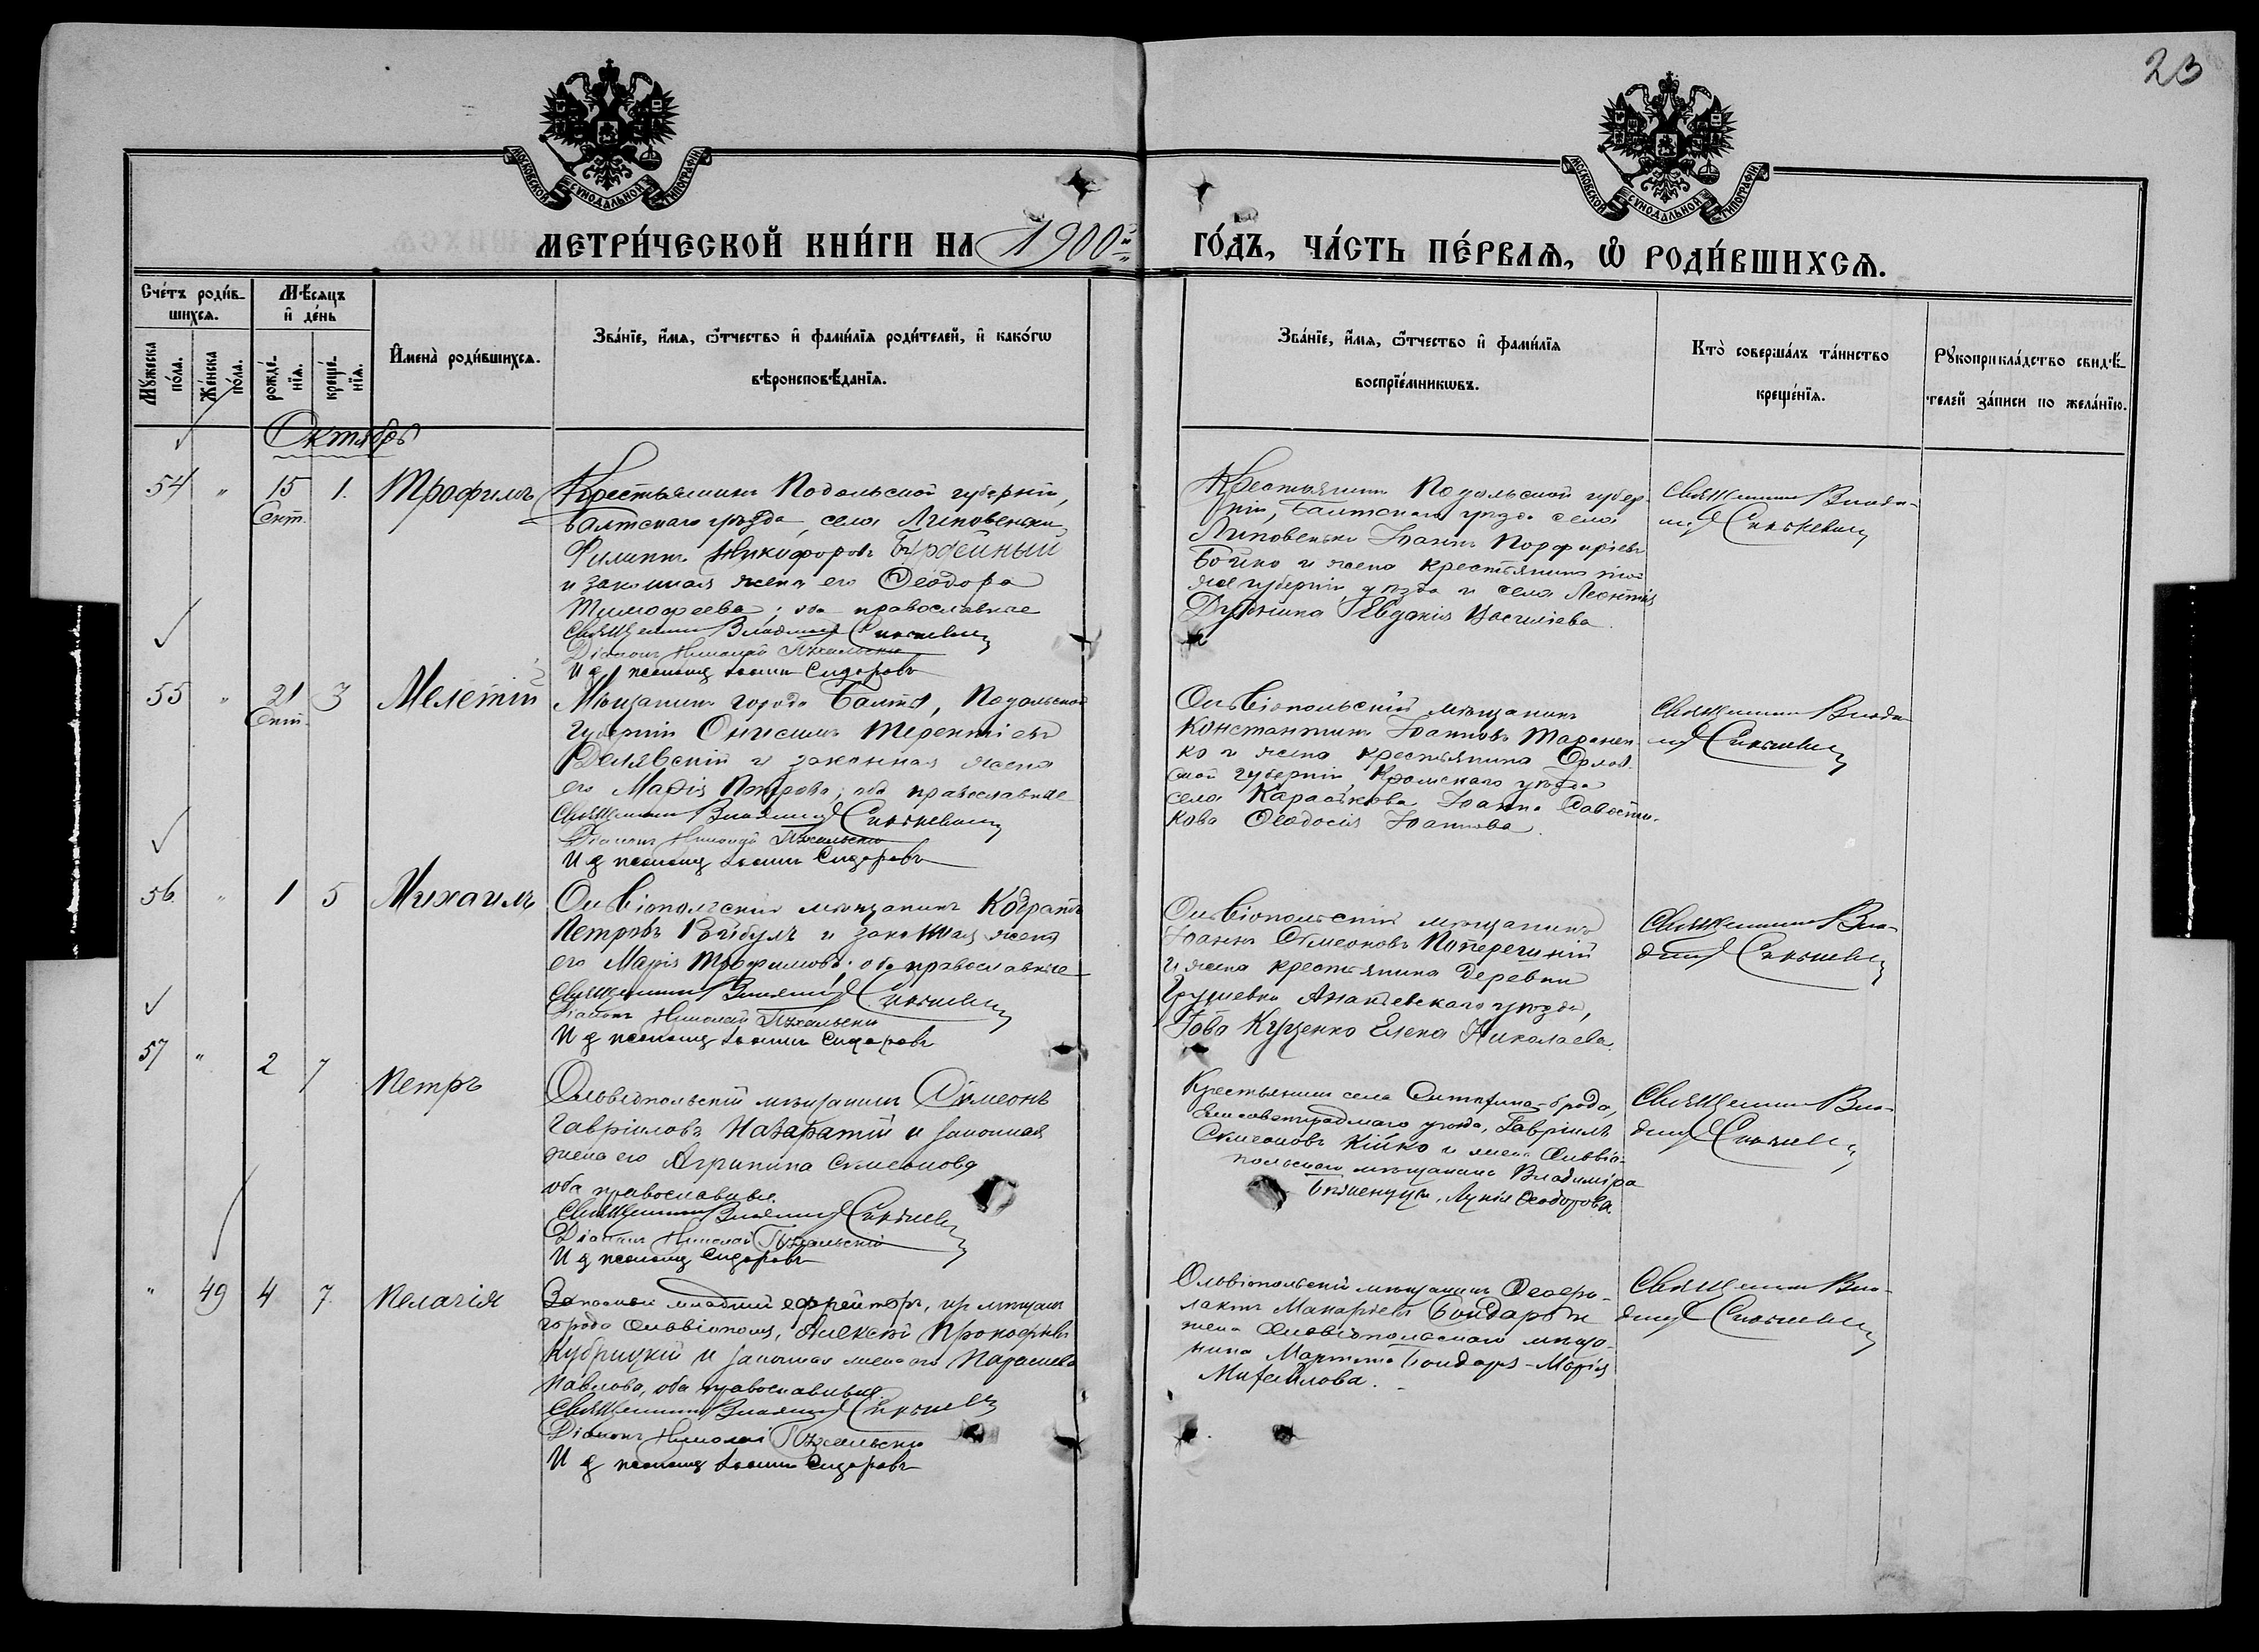 23
МОСКОВСКОЙ СѴНОДАЛЬНОЙ ТИПОГРАФІИ
МОСКОВСКОЙ СѴНОДАЛЬНОЙ ТИПОГРАФІИ
МЕТРИ́ЧЕСКОЙ КНИ́ГИ НА 1900й
ГО́ДЪ, ЧА́СТЬ ПЕ́РВАѦ, Ѡ РОДИ́ВШИХСѦ.
Сче́тъ роди́в-
шихсѧ.
Мѣ́сѧцъ
и҆ де́нь
Мꙋжеска по́ла.
Же́нска по́ла.
рожде́-
нїѧ.
креще́-
нїѧ.
И҆мена̀ роди́вшихсѧ.
Зва́нїе, и҆́мѧ, ѻ҆́тчество и҆ фами́лїѧ роди́телей, и҆ како́гѡ
вѣроисповѣ́данїѧ.
Зва́нїе, и҆́мѧ, ѻ҆́тчество и҆ фами́лїѧ
воспрїе́мникѡвъ.
Кто̀ соверша́лъ та́инство
креще́нїѧ.
Рꙋкоприкла́дство свидѣ́-
телей за́писи по жела́нїю.
Октябрь
54 " 15 Сент. 1. Трофимъ
Крестьянинъ Подольской губерніи,
Балтскаго уѣзда, села Липовеньки
Филиппъ Никифоровъ Бурдейный
и законная жена его Ѳеодора
Тимофеева; оба православные
Священникъ Владимір Синькевич
Діаконъ Николай Пухальскій
И д псаломщ Іоаннъ Сидоровъ
Крестьянинъ Подольской губер
ніи, Балтскаго уѣзда села
Липовеньки Іоаннъ Порфиріевъ
Бойко и жена крестьянина той
же губерніи, уѣзда и села Леонтія
Евдокія Василіева.
Священникъ Влади-
мір Синькевич
55 " 21 Сент. 3 Мелетій
Мѣщанинъ города Балты, Подольской
Губерніи Онисимъ Терентіевъ
и законная жена
его Марія Петрова; оба православные
Священникъ Владимір Синькевич
Діаконъ Николай Пухальскій
И д псаломщ Іоаннъ Сидоровъ
Ольвіопольскій мѣщанинъ
Константинъ Іоанновъ Таранен
ко и жена крестьянина Орлов.
ской губерніи, Кромскаго уѣзда
села Іоанна
Ѳеодосія Іоаннова.
Священникъ Влади
мір Синькевич
56. " 1 5 Михаилъ
Ольвіопольскій мѣщанинъ Кодратъ
Петровъ и законная жена
его Марія Трофимова. оба православные
Священникъ Владимір Синькевич
Діаконъ Николай Пухальскій
И д псаломщ Іоаннъ Сидоровъ
Ольвіопольскій мѣщанинъ
Іоаннъ Симеоновъ Поперечный
и жена крестьянина деревни
Грушевки Ананьевскаго уѣзда,
Іова Куценко Елена Николаева.
Священникъ Вла-
димір Синькевич
57 " 2 7 Петръ
Ольвіопольскій мѣщанинъ Симеонъ
Гавріиловъ Назаратій и законная
жена его Агрипина Симеонова
оба православные.
Священникъ Владимір Синькевич
Діаконъ Николай Пухальскій
И д псаломщ Сидоровъ
Крестьянинъ села Ситкина-брода,
Елисаветградскаго уѣзда, Гавріилъ
Симеоновъ Кійко и жена Ольвіо-
польскаго мѣщанина Владиміра
Лукія Ѳеодорова.
Священникъ Вла-
димір Синькевич
" 49 4 7. Пелагія
Запасной младшій ефрейторъ, из мѣщанъ
города Ольвіополя, Алексѣй Прокофьевъ
Кубрицкій и законная жена его Параскева
Павлова, оба православные.
Священникъ Владимір Синькевич
Діаконъ Николай Пухальскій
И д псаломщ Іоаннъ Сидоровъ
Ольвіопольскій мѣщанинъ Ѳеофи-
лактъ Макаріевъ Бондарь и
жена Ольвіопольскаго мѣща-
нина Бондаря - Марія
Михайлова.
Священникъ Вла-
димір Синькевич